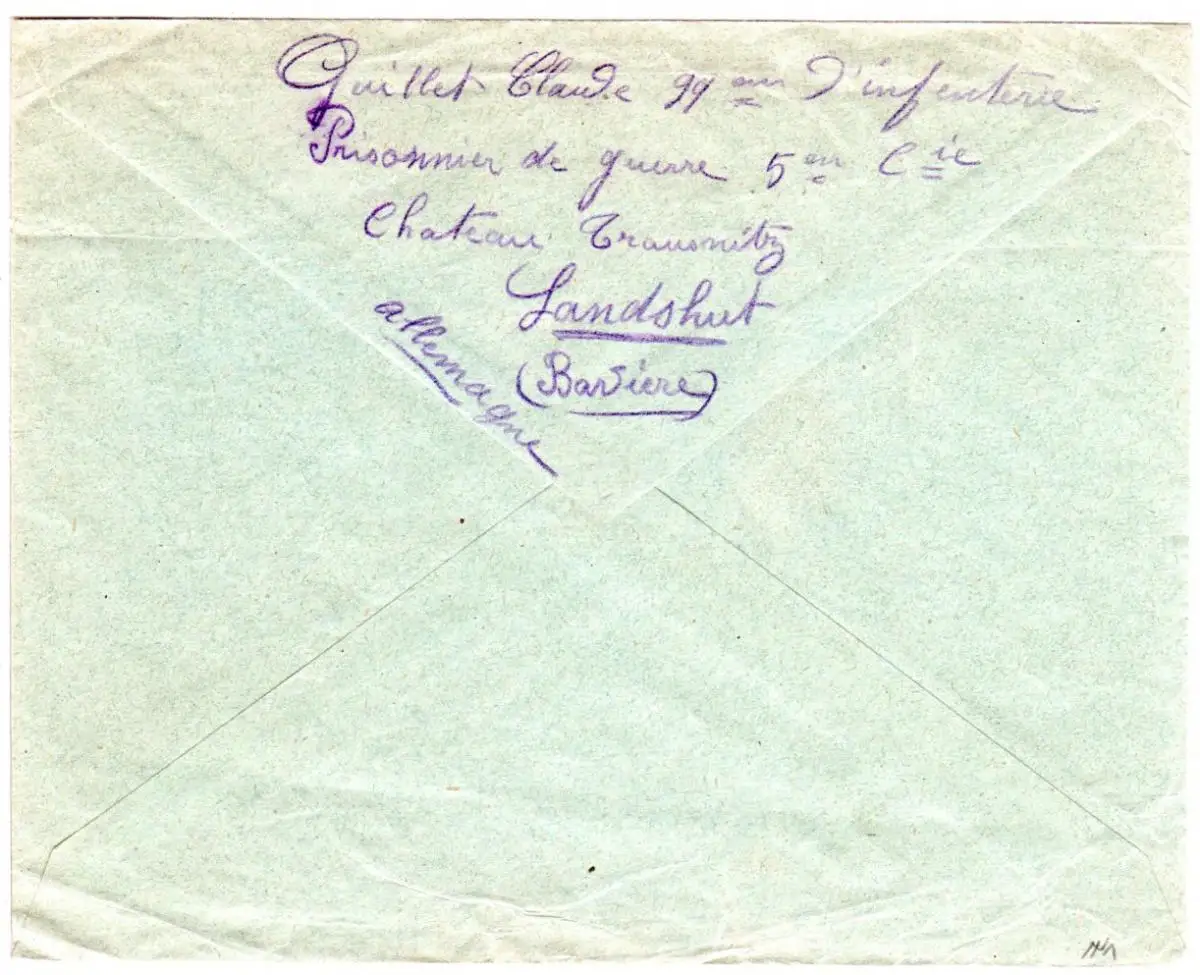 Guillet Claude 99 em d'infenterie
Prisonnier de guerre 5 em Cie
Chateau Trausnitz
Landshut
(Bavière)
allemagne